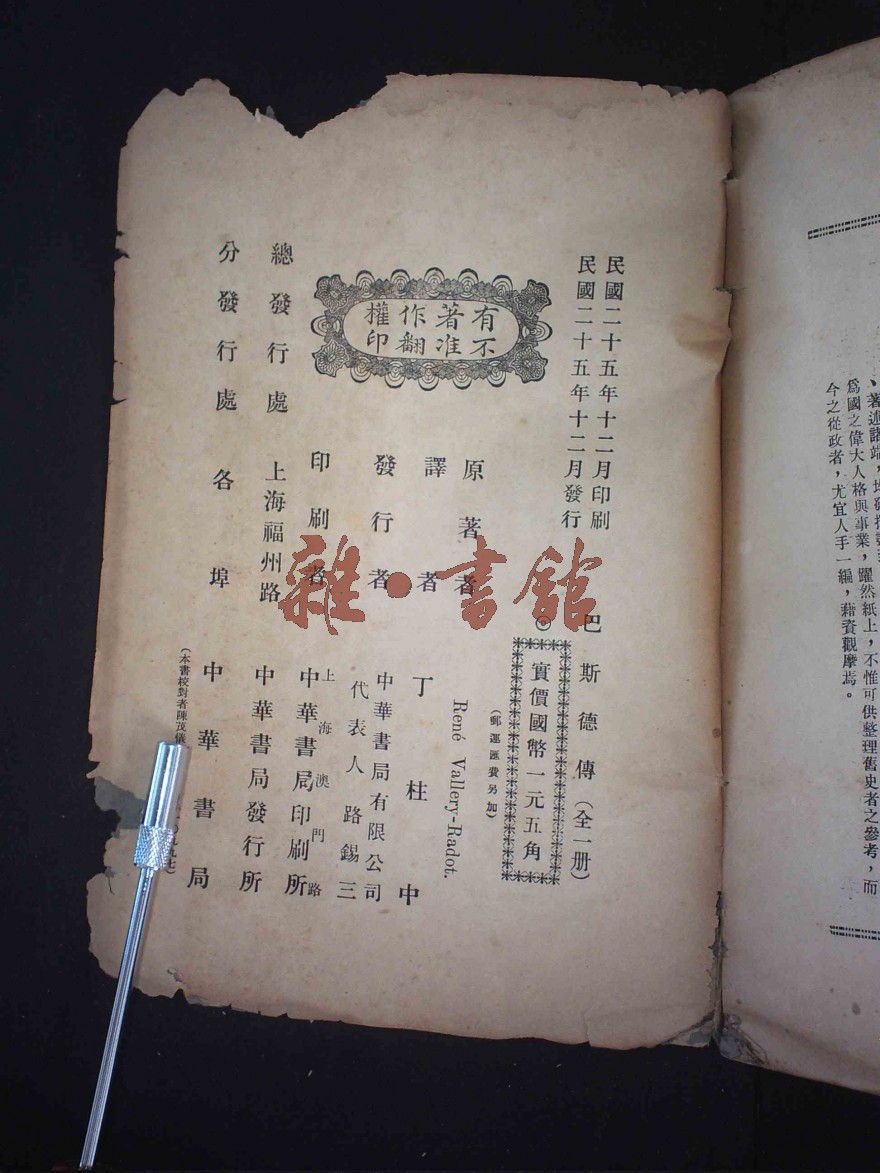 為國之偉大人格與事業，躍然紙上，不惟可供整理舊史者之參考，而
今之從政者，尤宜人手一編，藉資觀摩焉。
民國二十五年十二月印刷
民國二十五年十二月發行
巴斯德傳（全一册）
◎實價國幣一元五角
（郵運匯費另加）
有著作權
不准翻印
原著者 René Vallery-Radot.
譯者 丁柱中
發行者 中華書局有限公司
代表人路錫三
印刷者 上海澳門路
中華書局印刷所
總發行處 上海福州路 中華書局發行所
分發行處 各埠 中華書局
（本書校對者陳茂儀
雜·書館